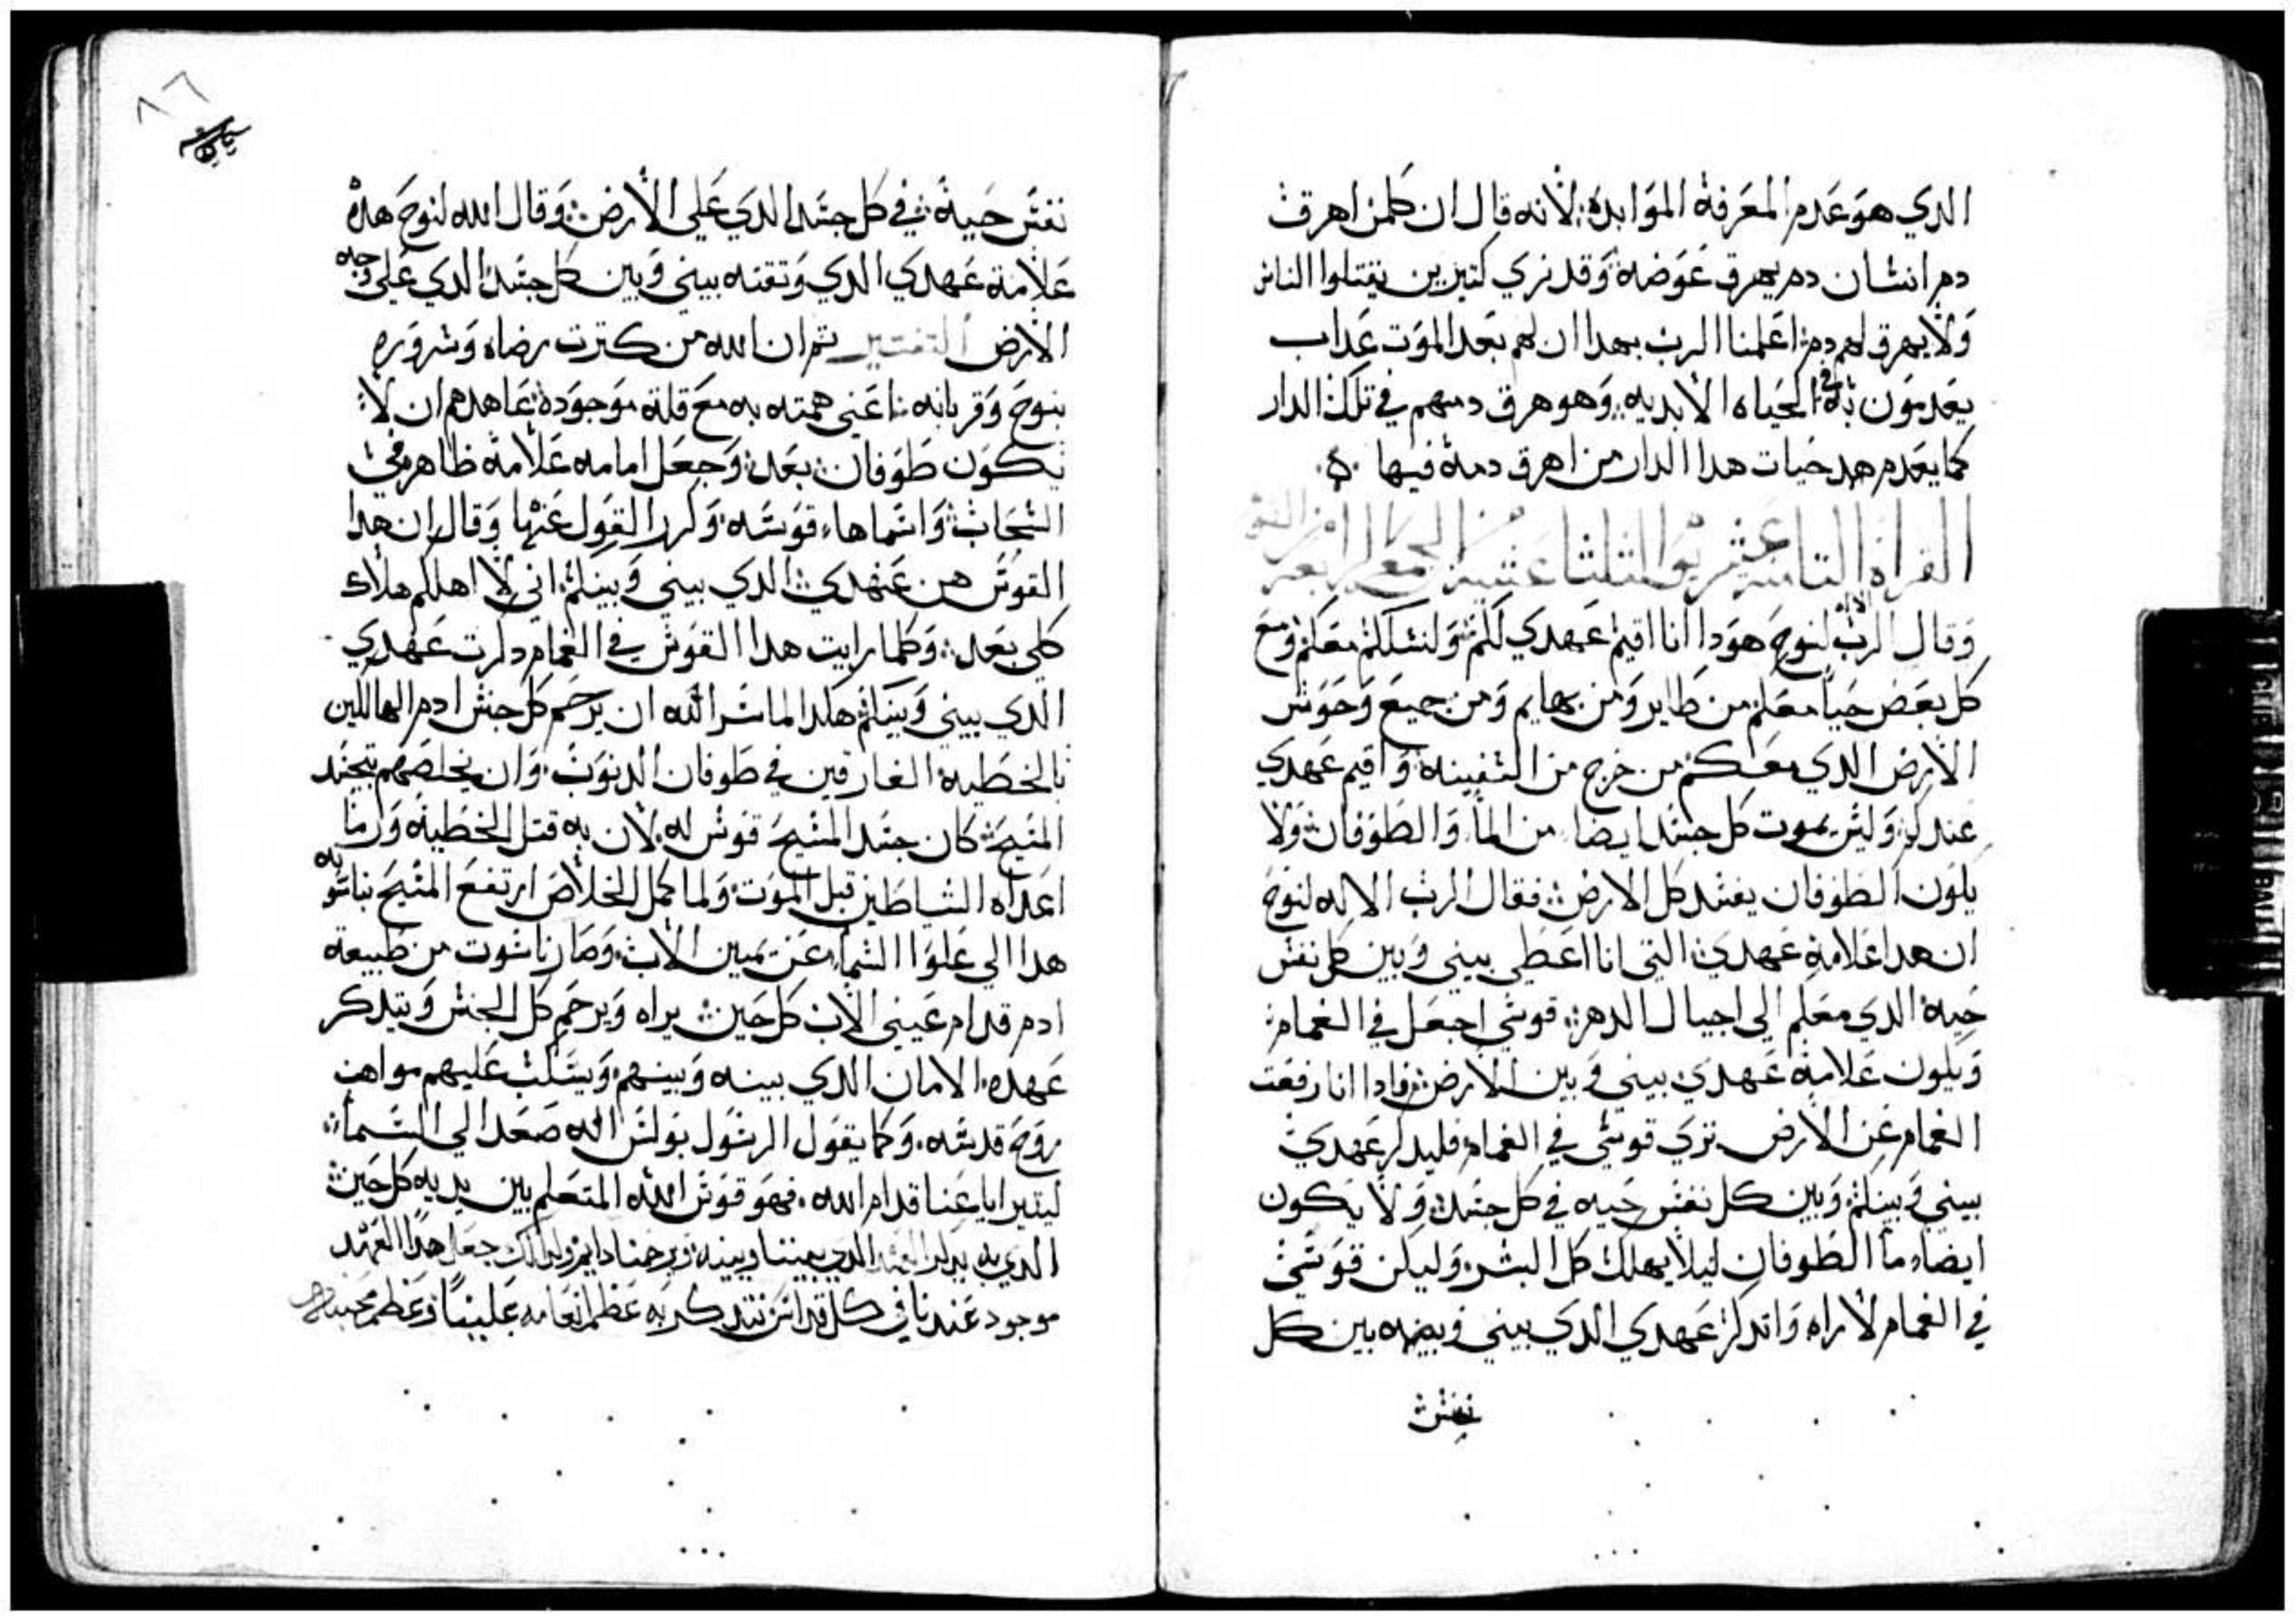 الدي هو عدم المعرفة المؤابدة لانه قال ان كلمن اهرق
دم انسان دم يهرق عوضه وقد نري كتيرين يقتلوا الناس
ولا يهرق لهم دم اعلمنا الرب بهدا ان لهم بعد الموت عداب
يعدمون به في الحياه الابديه وهو هرق دمهم في تلك الدار
كما يعدم هد حيات هدا الدار من اهرق دمة فيها
القراه التاسعة عشر يوم التلتا عشية من الجمعة الرابعة من الصوم
وقال الرب الاله لنوح هودا انا اقيم عهدي لكم ولنسلكم معكم ومع
كل بعض حيا معكم من طاير ومن بهايم ومن جميع وحوش
الارض الدي معكم من خرج من السفينه واقيم عهدي
عندكم وليس يموت كل جسد ايضا من الما والطوفان ولا
يكون الطوفان يفسد كل الارض فقال الرب الاله لنوح
ان هدا علامة عهدي التي انا اعطي بيني وبين كل نفس
حية الدي معكم الي اجيال الدهر قوسي اجعل في الغمام
ويكون علامة عهدي بيني وبين الارض فادا انا رفعت
الغمام عن الارض تري قوسي في الغمام فليدكر عهدي
بيني وبينكم وبين كل نفس حيه في كل جسد ولا يكون
ايضا ما الطوفان ليلا يهلك كل البشر وليكن قوسي
في الغمام لاراه واتدكر عهدي الدي بيني وبينه بين كل
نفس
٨٦
نفس حية في كل جسد الدي علي الارض وقال الله لنوح هده
علامة عهدي الدي وتقته بيني وبين كل جسد الدي علي وجه
الارض التفسير تم ان الله من كترت رضاه وسروره
بنوح وقربانه اعني همته به مع قلة موجودة عاهدهم ان لا
يكون طوفان بعد وجعل امامه علامة ظاهره في
السحاب واسماها قوسه وكرر القول عنها وقال ان هدا
القوس هن عهدي الدي بيني وبينكم اني لا اهلكم هلاك
كلي بعد وكلما رايت هدا القوس في الغمام دكرت عهدي
الدي بيني وبينكم هكدا لما سر الله ان يرحم كل جنس ادم الهالكين
بالخطية الغارقين في طوفان الدنوب وان يخلصهم بتجسد
المسيح كان جسد المسيح قوس له لان به قتل الخطية وارما
اعداه الشياطين قبل الموت ولما كمل الخلاص ارتفع المسيح بناسوته
هدا الي علوا السما عن يمين الاب وصار ناسوت من طبيعة
ادم قدام عيني الاب كل حين يراه ويرحم كل الجنس ويتدكر
عهده الامان الدي بينه وبينهم ويسكب عليهم مواهب
روح قدسه وكما يقول الرسول بولس انه صعد الي السما
ليتيرايا عنا قدام الله فهو قوس الله المتعلم بين يديه كل حين
الدي به يدكر العهد الدي بيننا وبينه ويرحمنا دايم ولدلك جعل هدا العهد
موجود عندنا في كل قداس نتدكر به عظم انعامه علينا وعظم محبته